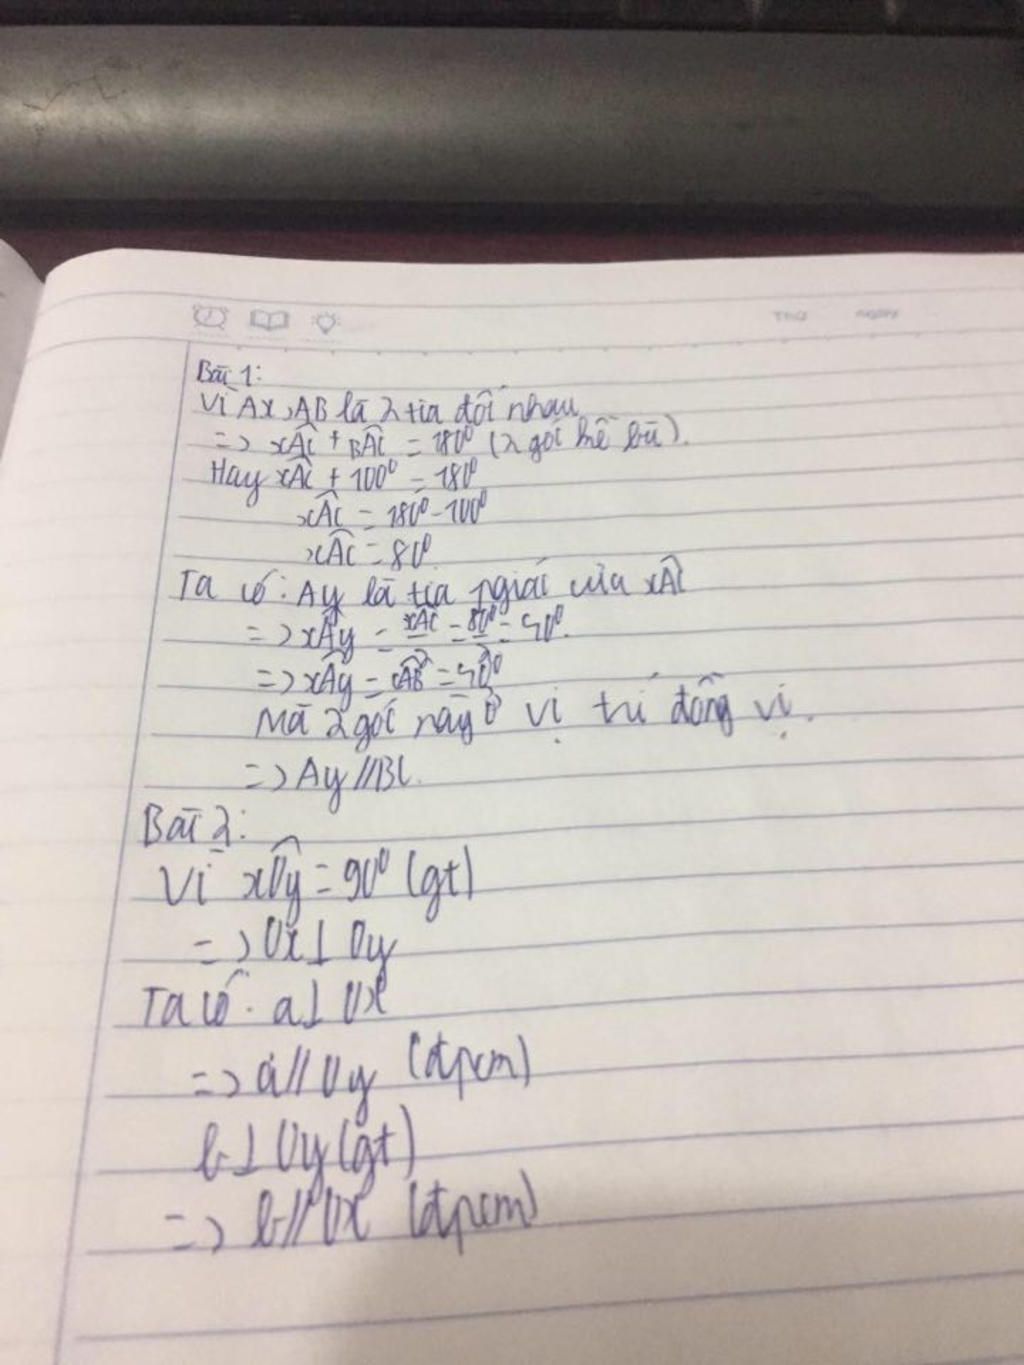 Bài 1:
Vì Ax, AB là 2 tia đối nhau
=> xÂC + BÂC = 180⁰ (2 góc kề bù).
Hay xÂC + 100⁰ = 180⁰
xÂC = 180⁰ - 100⁰
xÂC = 80⁰
Ta có: Ay là tia pgiác của xÂC
=> xÂy = xÂC/2 = 80⁰/2 = 40⁰.
=> xÂy = CÂB = 40⁰
Mà 2 góc này ở vị trí đồng vị.
=> Ay // BC.
Bài 2:
Vì xÔy = 90⁰ (gt)
=> Ox ⊥ Oy
Ta có: a ⊥ Ox
=> a // Oy (đpcm)
b ⊥ Oy (gt)
=> b // Ox (đpcm)